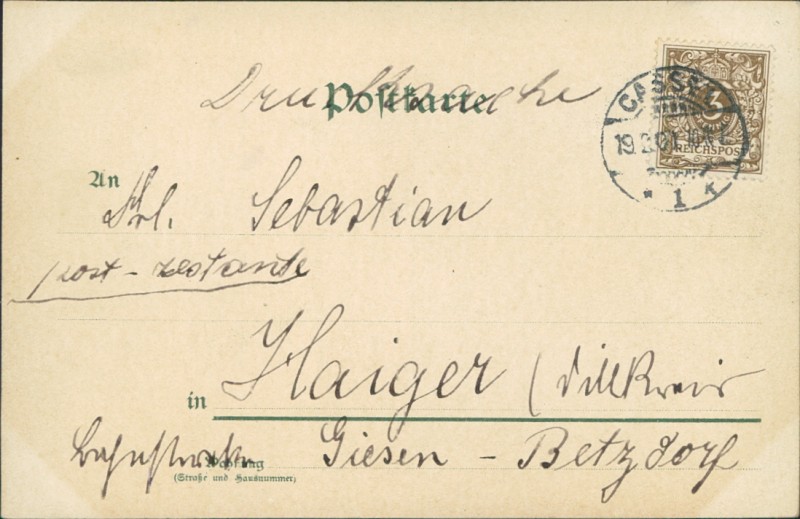 Drucksache
Postkarte
CASSEL
19.3.01
3
REICHSPOST
* 1 k
An
Frl. Sebastian
post-restante
in Haiger (Dillkreis
Bahnstrecke Giesen - Betzdorf
Wohnung
(Straße und Hausnummer)